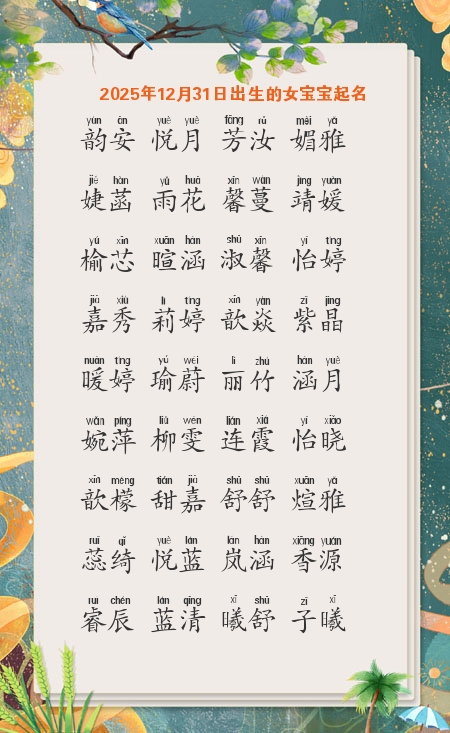 2025年12月31日出生的女宝宝起名
yùn ān yuè yuè fāng rǔ mèi yǎ
韵安 悦月 芳汝 媚雅
jié hàn yǔ huā xīn wàn jìng yuàn
婕菡 雨花 馨蔓 靖媛
yú xīn xuān hán shū xīn yí tíng
榆芯 暄涵 淑馨 怡婷
jiā xiù lì tíng xīn yàn zǐ jīng
嘉秀 莉婷 歆焱 紫晶
nuǎn tíng yú wèi lì zhú hán yuè
暖婷 瑜蔚 丽竹 涵月
wǎn píng liǔ wén lián xiá yí xiǎo
婉萍 柳雯 连霞 怡晓
xīn méng tián jiā shū shū xuān yǎ
歆檬 甜嘉 舒舒 煊雅
ruǐ qǐ yuè lán lán hán xiāng yuán
蕊绮 悦蓝 岚涵 香源
ruì chén lán qīng xī shū zǐ xī
睿辰 蓝清 曦舒 子曦